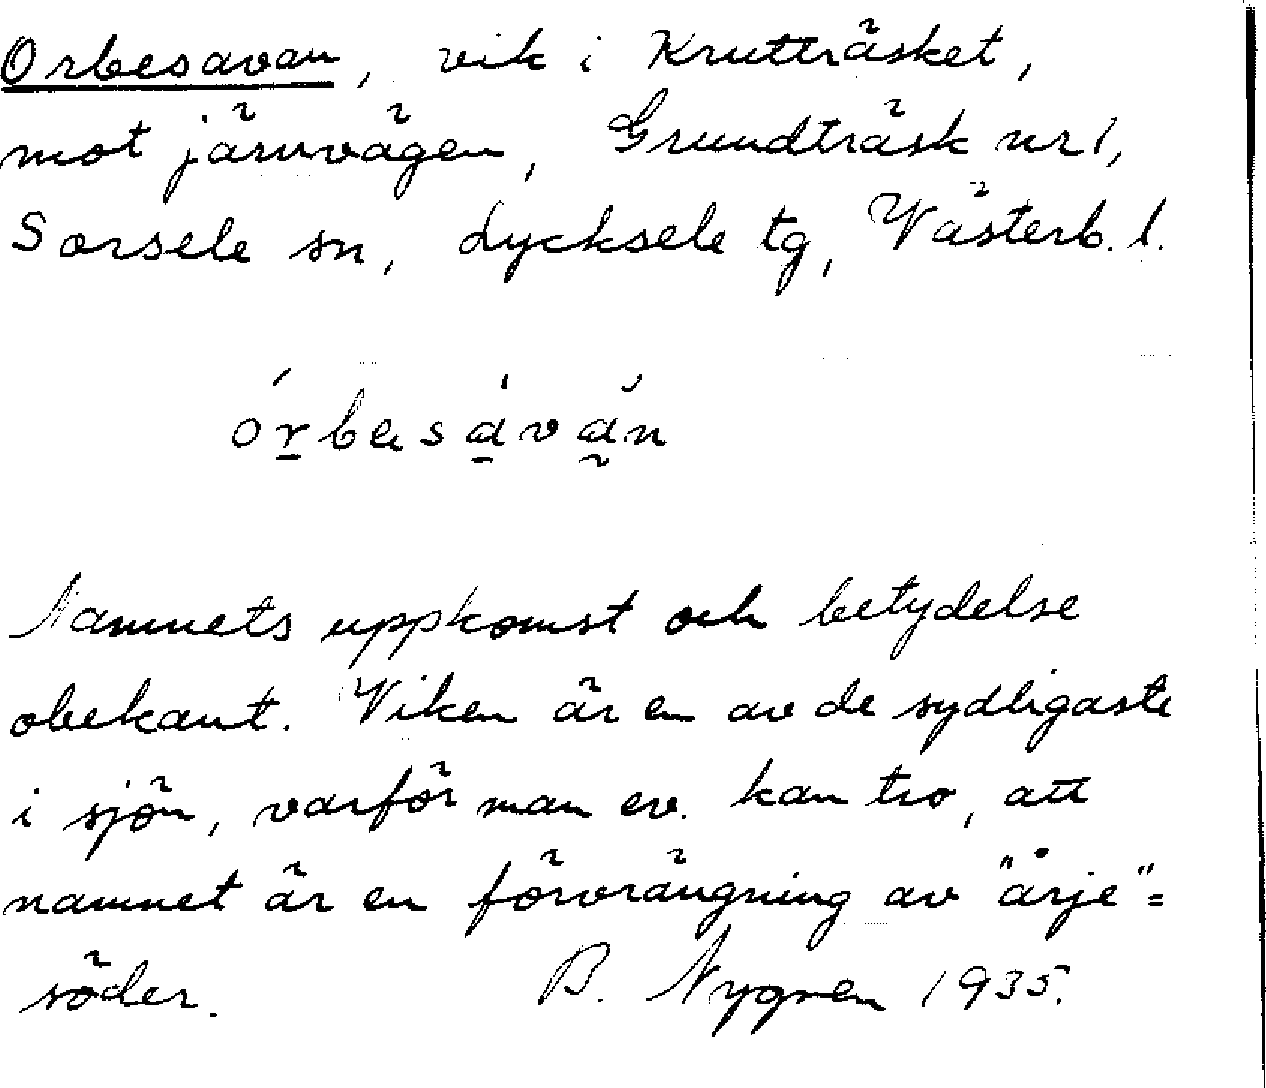 Orbesavan, vik i Krutträsket,
mot järnvägen, Grundträsk nr 1,
Sorsele sn, Lycksele tg, Västerb. l.
órbesávăn
Namnets uppkomst och betydelse
obekant. Viken är en av de sydligaste
i sjön, varför man ev. kan tro, att
namnet är en förvrängning av "årje"=
söder. B. Nygren 1935.